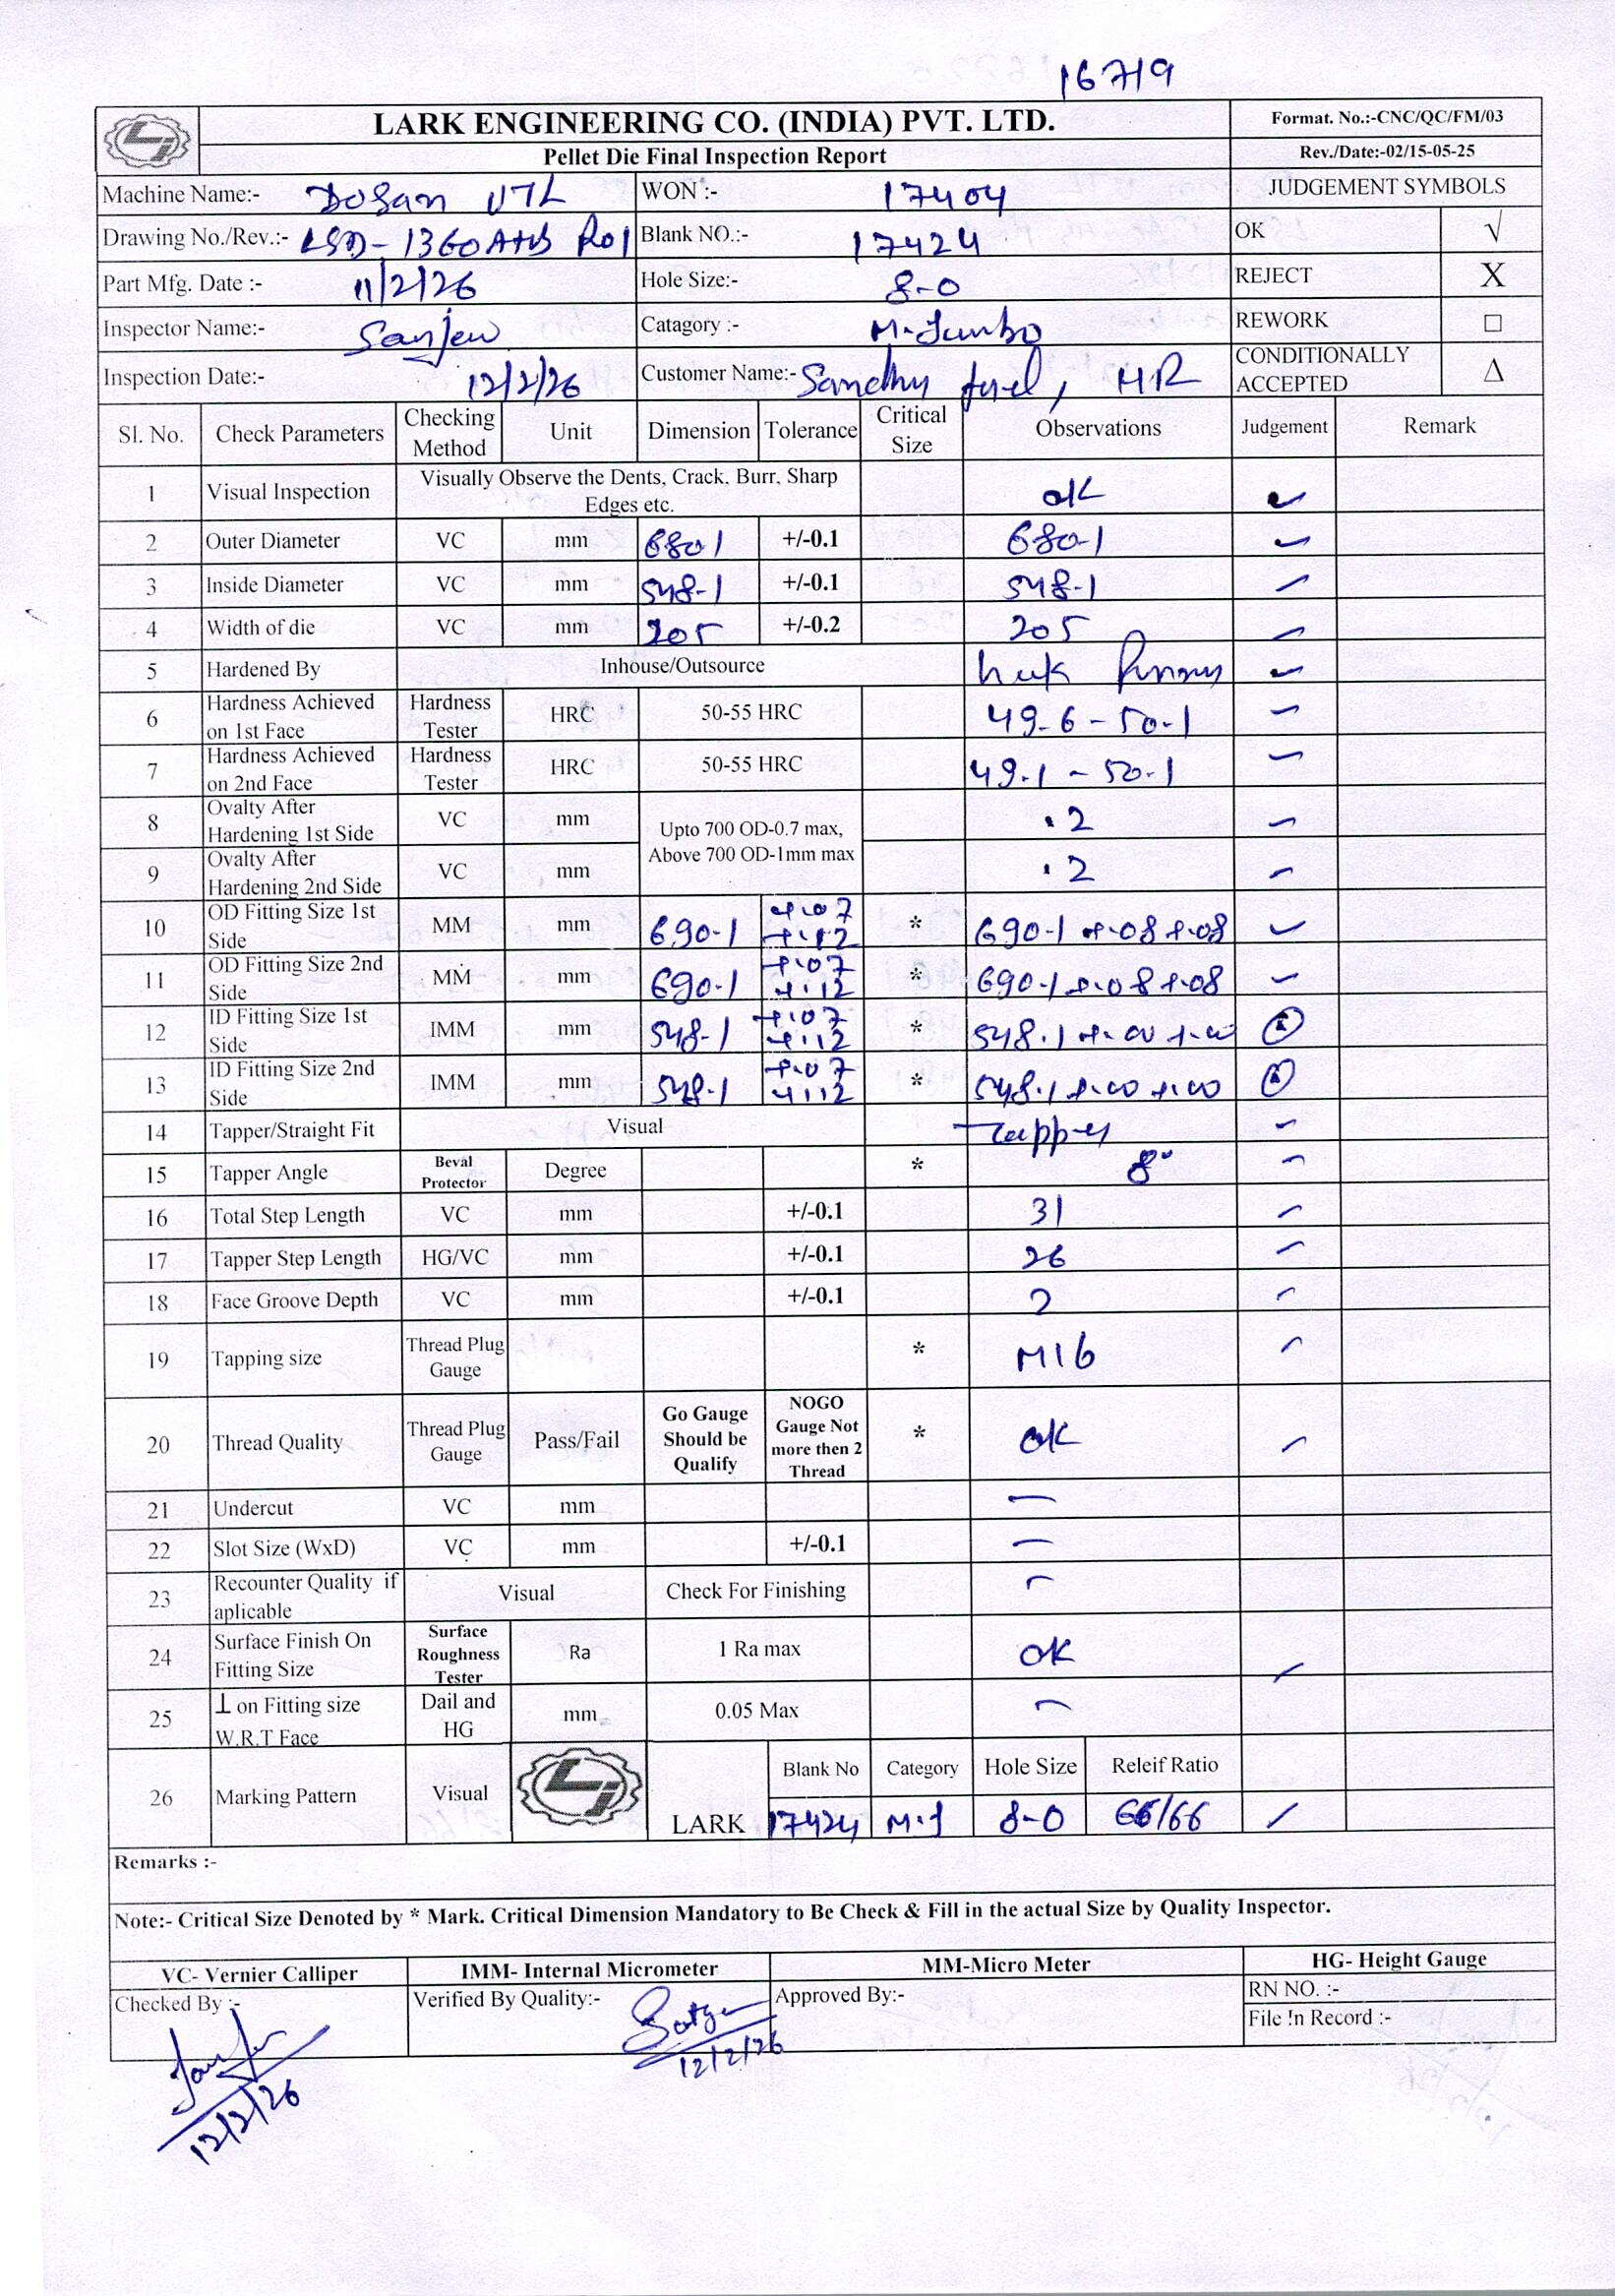 16719
LARK ENGINEERING CO. (INDIA) PVT. LTD.
Format. No.:-CNC/QC/FM/03
Pellet Die Final Inspection Report
Rev./Date:-02/15-05-25
Machine Name:- Dosan VTL WON :- 17404 JUDGEMENT SYMBOLS
Drawing No./Rev.:- LSD-1360 R01 Blank NO.:- 17424 OK √
Part Mfg. Date :- 11/2/26 Hole Size:- 8-0 REJECT X
Inspector Name:- Sanjew Catagory :- M-Jumbo REWORK □
Inspection Date:- 12/2/26 Customer Name:- Sandhy fuel, HR CONDITIONALLY ACCEPTED Δ
Sl. No. Check Parameters Checking Method Unit Dimension Tolerance Critical Size Observations Judgement Remark
1 Visual Inspection Visually Observe the Dents, Crack, Burr, Sharp Edges etc. OK ✓
2 Outer Diameter VC mm 680-1 +/-0.1 680-1 ✓
3 Inside Diameter VC mm 548-1 +/-0.1 548-1 ✓
4 Width of die VC mm 205 +/-0.2 205 ✓
5 Hardened By Inhouse/Outsource ✓
6 Hardness Achieved on 1st Face Hardness Tester HRC 50-55 HRC 49-6 - 50-1 ✓
7 Hardness Achieved on 2nd Face Hardness Tester HRC 50-55 HRC 49-1 - 50-1 ✓
8 Ovalty After Hardening 1st Side VC mm Upto 700 OD-0.7 max, Above 700 OD-1mm max .2 ✓
9 Ovalty After Hardening 2nd Side VC mm .2 ✓
10 OD Fitting Size 1st Side MM mm 690-1 +.07 +.12 * 690-1 +.08 +.08 ✓
11 OD Fitting Size 2nd Side MM mm 690-1 +.07 +.12 * 690-1 +.08 +.08 ✓
12 ID Fitting Size 1st Side IMM mm 548-1 +.07 +.12 * 548.1 +.00 +.00
13 ID Fitting Size 2nd Side IMM mm 548-1 +.07 +.12 * 548.1 +.00 +.00
14 Tapper/Straight Fit Visual Tapper ✓
15 Tapper Angle Beval Protector Degree * 8° ✓
16 Total Step Length VC mm +/-0.1 31 ✓
17 Tapper Step Length HG/VC mm +/-0.1 26 ✓
18 Face Groove Depth VC mm +/-0.1 2 ✓
19 Tapping size Thread Plug Gauge * M16 ✓
20 Thread Quality Thread Plug Gauge Pass/Fail Go Gauge Should be Qualify NOGO Gauge Not more then 2 Thread * OK ✓
21 Undercut VC mm —
22 Slot Size (WxD) VC mm +/-0.1 —
23 Recounter Quality if aplicable Visual Check For Finishing —
24 Surface Finish On Fitting Size Surface Roughness Tester Ra 1 Ra max OK ✓
25 ⊥ on Fitting size W.R.T Face Dail and HG mm 0.05 Max —
26 Marking Pattern Visual LARK Blank No Category Hole Size Releif Ratio
17424 M.J 8-0 66/66 ✓
Remarks :-
Note:- Critical Size Denoted by * Mark. Critical Dimension Mandatory to Be Check & Fill in the actual Size by Quality Inspector.
VC- Vernier Calliper IMM- Internal Micrometer MM-Micro Meter HG- Height Gauge
Checked By :- Verified By Quality:- Approved By:- RN NO. :-
File In Record :-
12/2/26
12/2/26